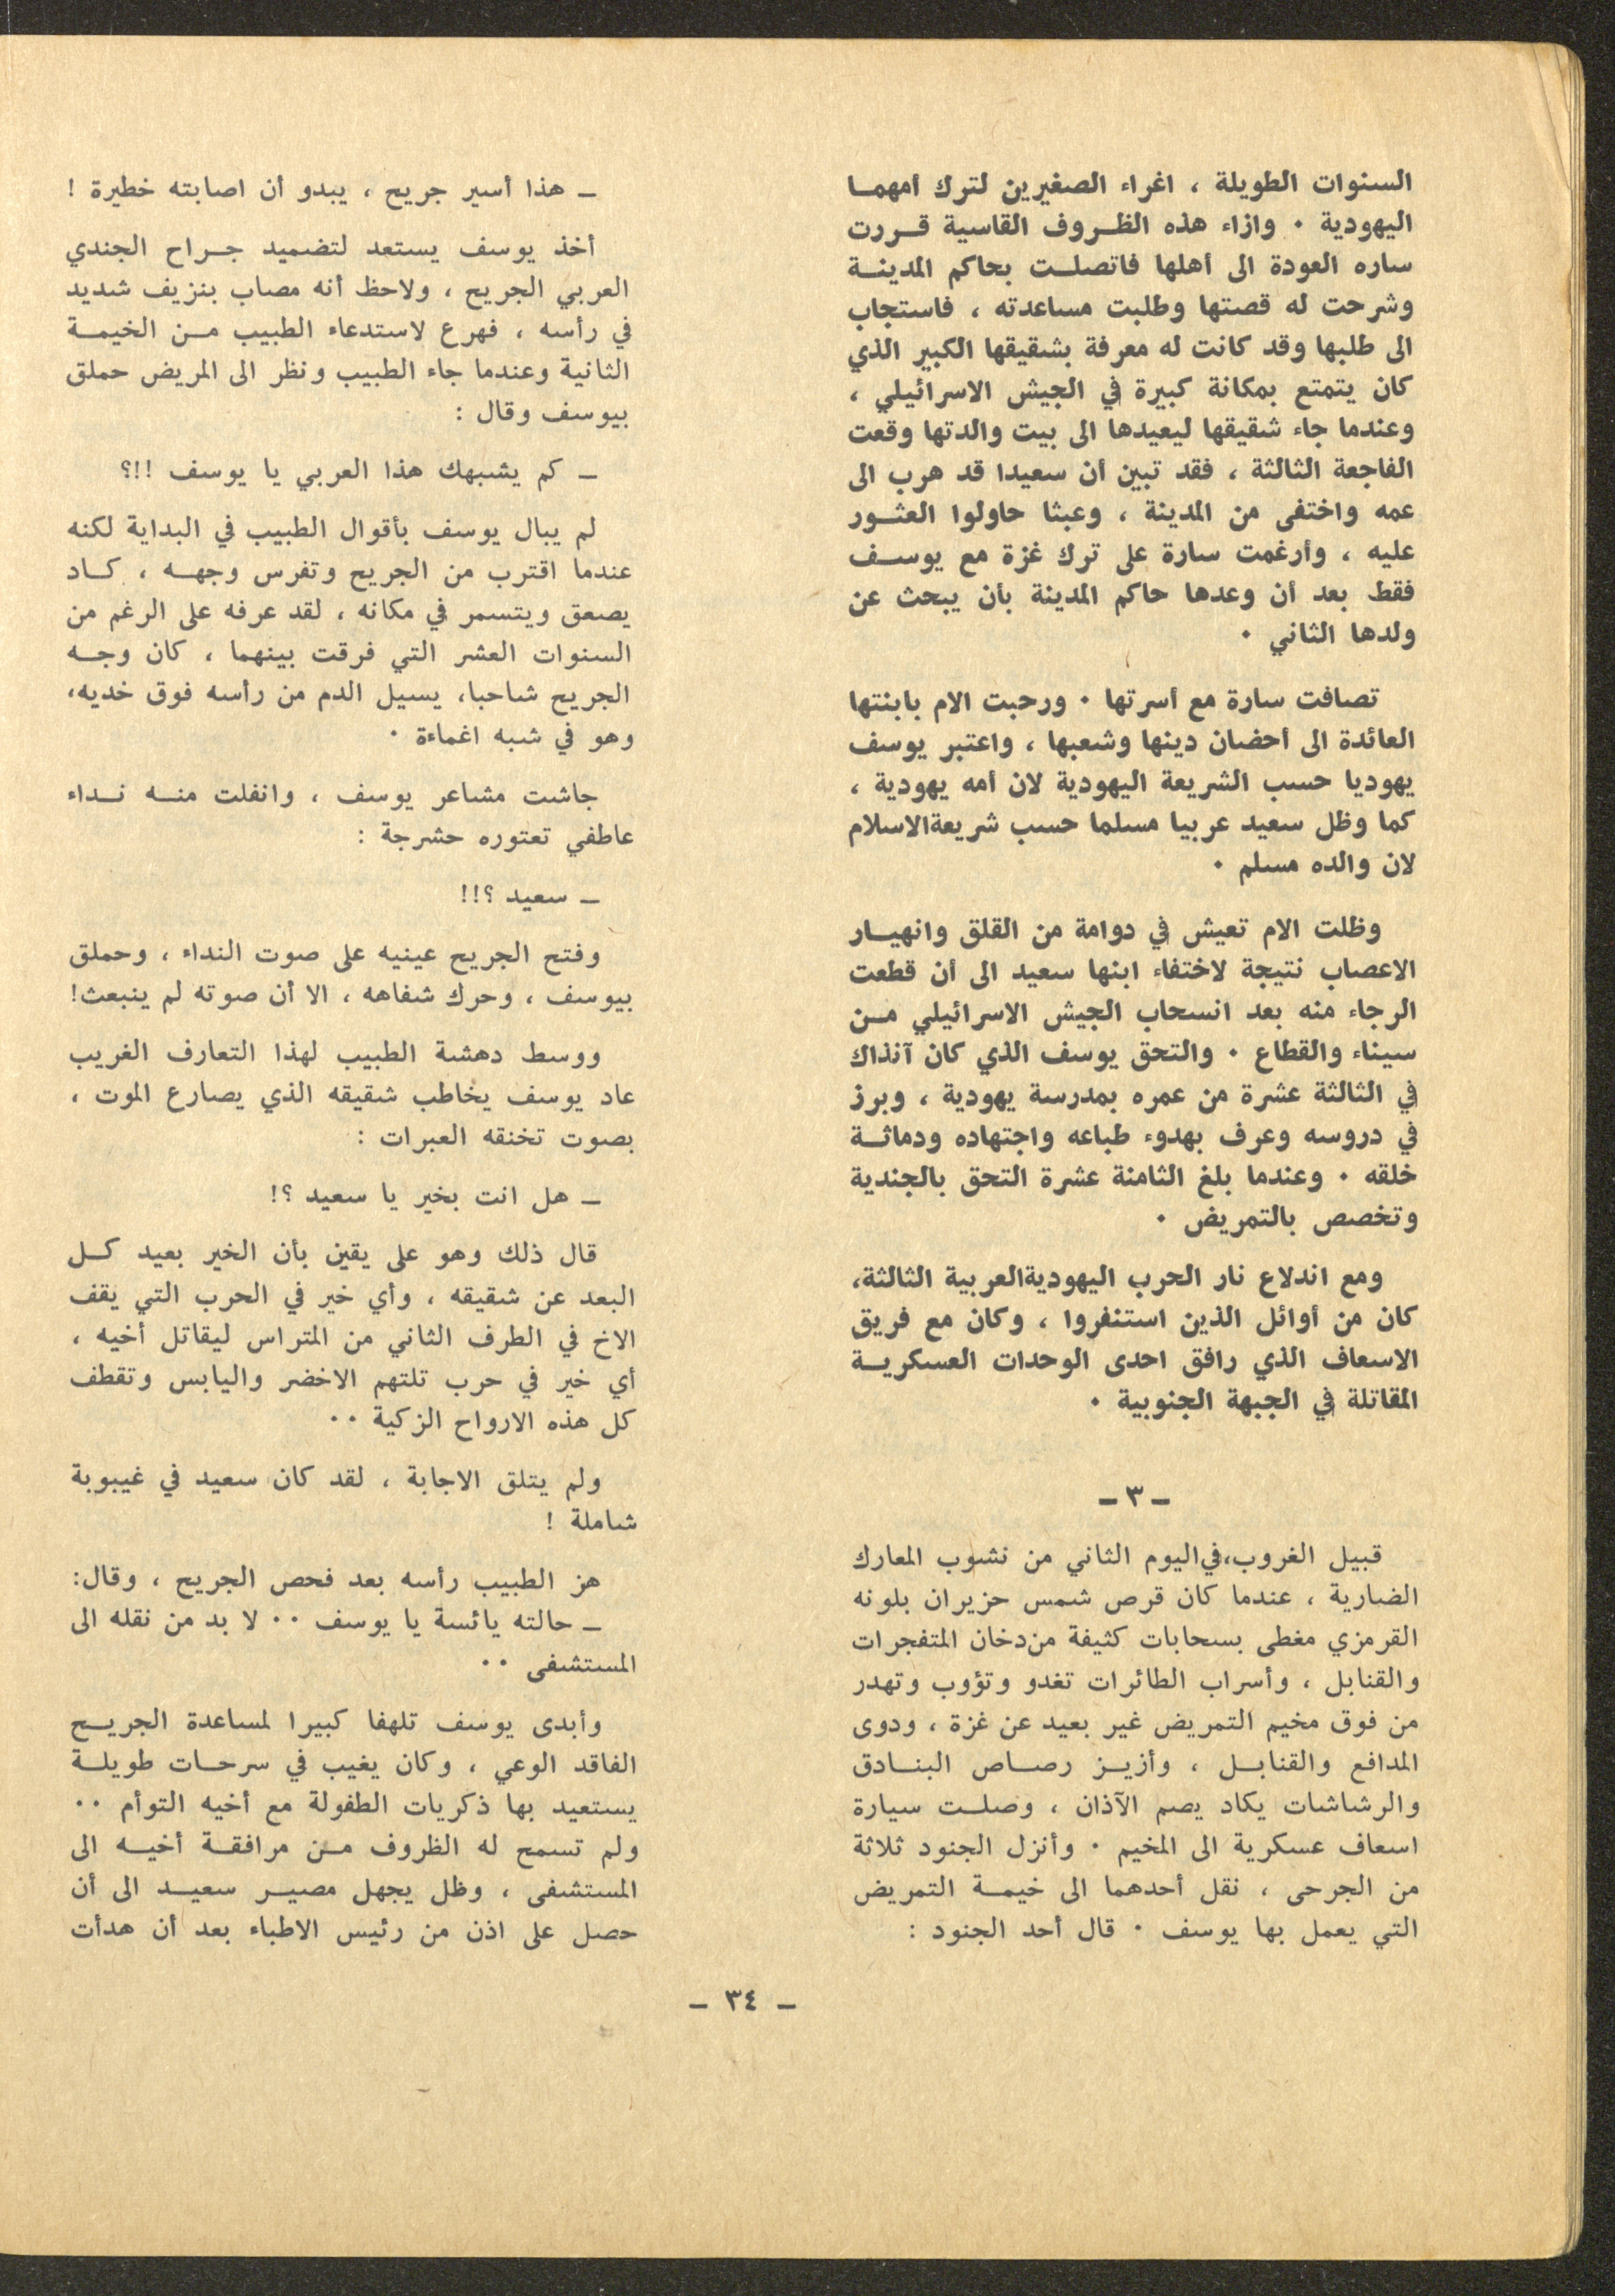 السنوات الطويلة ، اغراء الصغيرين لترك أمهما
اليهودية ٠ وازاء هذه الظروف القاسية قررت
ساره العودة الى أهلها فاتصلت بحاكم المدينة
وشرحت له قصتها وطلبت مساعدته ، فاستجاب
الى طلبها وقد كانت له معرفة بشقيقها الكبير الذي
كان يتمتع بمكانة كبيرة في الجيش الاسرائيلي ،
وعندما جاء شقيقها ليعيدها الى بيت والدتها وقعت
الفاجعة الثالثة ، فقد تبين أن سعيدا قد هرب الى
عمه واختفى من المدينة ، وعبثا حاولوا العثور
عليه ، وأرغمت سارة على ترك غزة مع يوسف
فقط بعد أن وعدها حاكم المدينة بأن يبحث عن
ولدها الثاني ٠
تصافت سارة مع أسرتها ٠ ورحبت الام بابنتها
العائدة الى أحضان دينها وشعبها ، واعتبر يوسف
يهوديا حسب الشريعة اليهودية لان أمه يهودية ،
كما وظل سعيد عربيا مسلما حسب شريعةالاسلام
لان والده مسلم ٠
وظلت الام تعيش في دوامة من القلق وانهيار
الاعصاب نتيجة لاختفاء ابنها سعيد الى أن قطعت
الرجاء منه بعد انسحاب الجيش الاسرائيلي من
سيناء والقطاع ٠ والتحق يوسف الذي كان آنذاك
في الثالثة عشرة من عمره بمدرسة يهودية ، وبرز
في دروسه وعرف بهدوء طباعه واجتهاده ودماثة
خلقه ٠ وعندما بلغ الثامنة عشرة التحق بالجندية
وتخصص بالتمريض ٠
ومع اندلاع نار الحرب اليهوديةالعربية الثالثة،
كان من أوائل الذين استنفروا ، وكان مع فريق
الاسعاف الذي رافق احدى الوحدات العسكرية
المقاتلة في الجبهة الجنوبية ٠
– ٣ –
قبيل الغروب،في اليوم الثاني من نشوب المعارك
الضارية ، عندما كان قرص شمس حزيران بلونه
القرمزي مغطى بسحابات كثيفة من دخان المتفجرات
والقنابل ، وأسراب الطائرات تغدو وتؤوب وتهدر
من فوق مخيم التمريض غير بعيد عن غزة ، ودوى
المدافع والقنابل ، وأزيز رصاص البنادق
والرشاشات يكاد يصم الآذان ، وصلت سيارة
اسعاف عسكرية الى المخيم ٠ وأنزل الجنود ثلاثة
من الجرحى ، نقل أحدهما الى خيمة التمريض
التي يعمل بها يوسف ٠ قال أحد الجنود :
– هذا أسير جريح ، يبدو أن اصابته خطيرة !
أخذ يوسف يستعد لتضميد جراح الجندي
العربي الجريح ، ولاحظ أنه مصاب بنزيف شديد
في رأسه ، فهرع لاستدعاء الطبيب من الخيمة
الثانية وعندما جاء الطبيب ونظر الى المريض حملق
بيوسف وقال :
– كم يشبهك هذا العربي يا يوسف !!؟
لم يبال يوسف بأقوال الطبيب في البداية لكنه
عندما اقترب من الجريح وتفرس وجهه ، كاد
يصعق ويتسمر في مكانه ، لقد عرفه على الرغم من
السنوات العشر التي فرقت بينهما ، كان وجه
الجريح شاحبا، يسيل الدم من رأسه فوق خديه،
وهو في شبه اغماءة ٠
جاشت مشاعر يوسف ، وانفلت منه نداء
عاطفي تعتوره حشرجة :
– سعيد ؟!!
وفتح الجريح عينيه على صوت النداء ، وحملق
بيوسف ، وحرك شفاهه ، الا أن صوته لم ينبعث!
ووسط دهشة الطبيب لهذا التعارف الغريب
عاد يوسف يخاطب شقيقه الذي يصارع الموت ،
بصوت تخنقه العبرات :
– هل انت بخير يا سعيد ؟!
قال ذلك وهو على يقين بأن الخير بعيد كل
البعد عن شقيقه ، وأي خير في الحرب التي يقف
الاخ في الطرف الثاني من المتراس ليقاتل أخيه ،
أي خير في حرب تلتهم الاخضر واليابس وتقطف
كل هذه الارواح الزكية ٠٠
ولم يتلق الاجابة ، لقد كان سعيد في غيبوبة
شاملة !
هز الطبيب رأسه بعد فحص الجريح ، وقال:
– حالته يائسة يا يوسف ٠٠ لا بد من نقله الى
المستشفى ٠٠
وأبدى يوسف تلهفا كبيرا لمساعدة الجريح
الفاقد الوعي ، وكان يغيب في سرحات طويلة
يستعيد بها ذكريات الطفولة مع أخيه التوأم ٠٠
ولم تسمح له الظروف من مرافقة أخيه الى
المستشفى ، وظل يجهل مصير سعيد الى أن
حصل على اذن من رئيس الاطباء بعد أن هدأت
– ٣٤ –